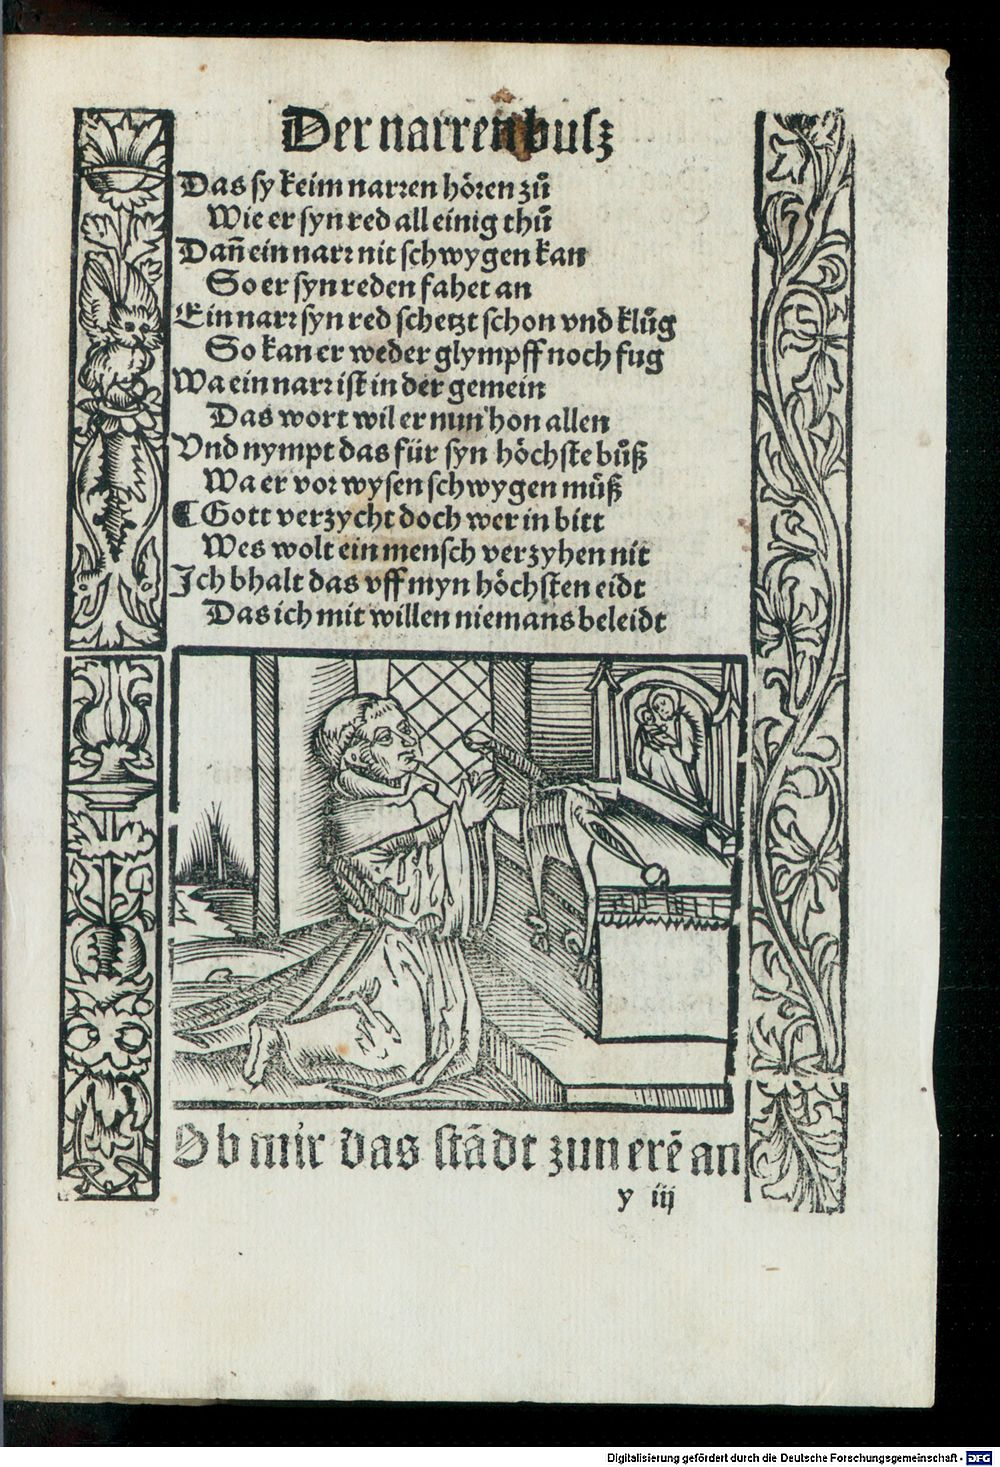 Der narren busz
Das sy keim narren hören zů
Wie er syn red all einig thů
Dañ ein narr nit schwygen kan
So er syn reden fahet an
Ein narr syn red schetzt schon vnd klůg
So kan er weder glympff noch fug
Wa ein narr ist in der gemein
Das wort wil er nun hon allen
Vnd nympt das für syn höchste bůß
Wa er vor wysen schwygen můß
¶ Gott verzycht doch wer in bitt
Wes wolt ein mensch verzyhen nit
Ich bhalt das vff myn höchsten eidt
Das ich mit willen niemans beleidt
Ob mir das stãdt zun erẽ an
y iij
Digitalisierung gefördert durch die Deutsche Forschungsgemeinschaft - DFG